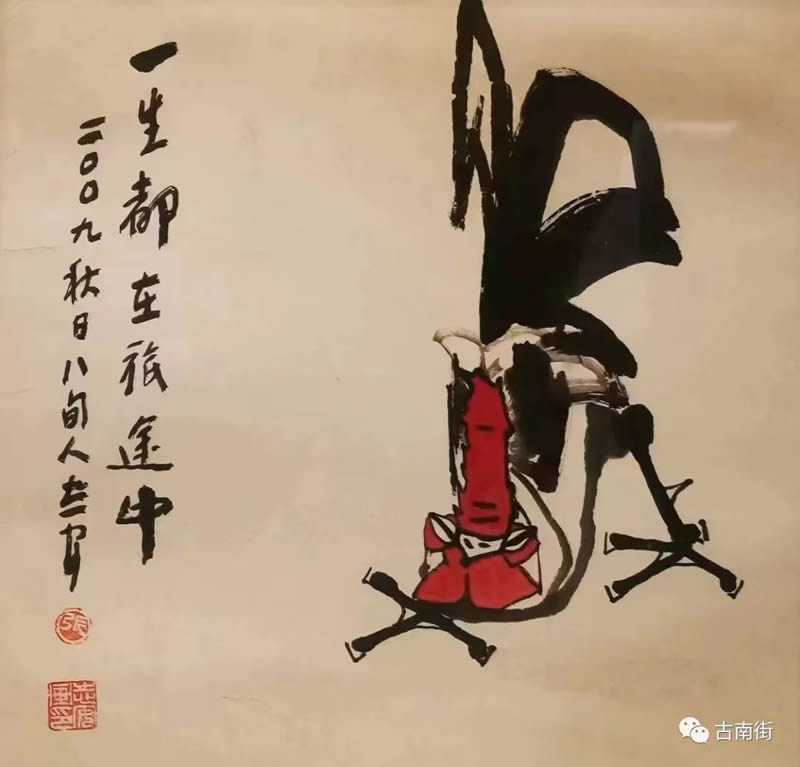 一生都在旅途中
二〇〇九秋日八旬人
古南街